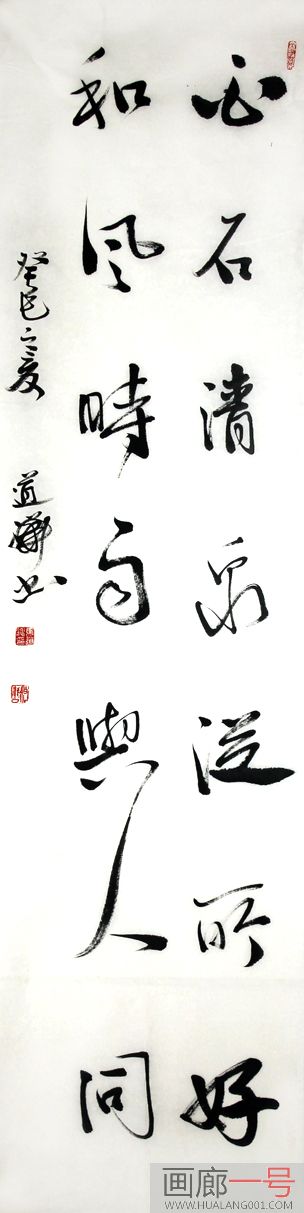 白石清泉從所好
和風時雨與人同
癸巳之夏 道華书
画廊一号
WWW.HUALANG001.COM